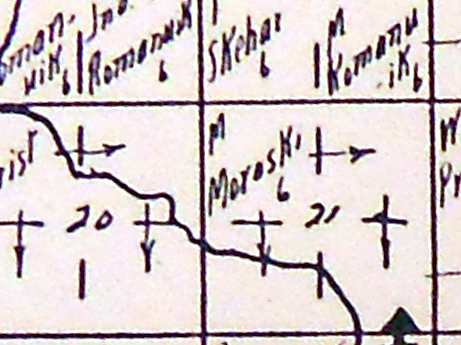 Jno.
Romanuik
6
Skehar
6
M
Romanu
ik
6
oman-
uik
6
rist
20
M
Moroski
6
21
W
Pr